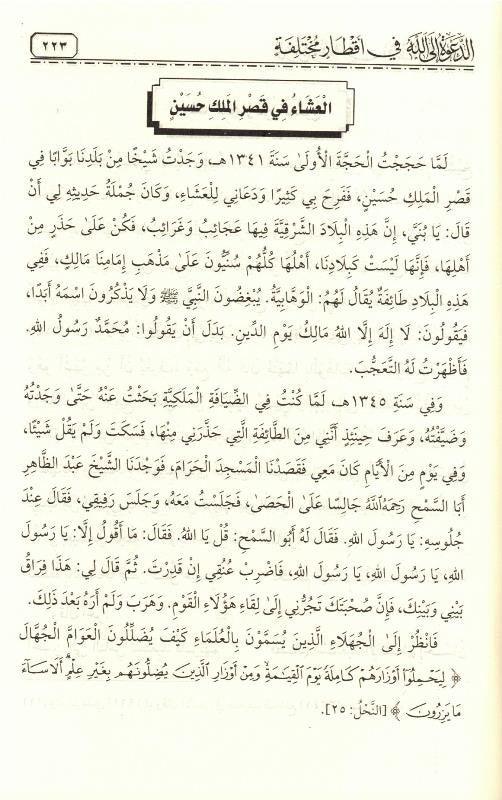 الدَّعْوَةُ إِلَى اللَّهِ فِي أَقْطَارٍ مُخْتَلِفَةٍ
٢٢٣
الْعَشَاءُ فِي قَصْرِ الْمَلِكِ حُسَيْنٍ
لَمَّا حَجَجْتُ الْحَجَّةَ الْأُولَى سَنَةَ ١٣٤١هـ، وَجَدْتُ شَيْخًا مِنْ بَلَدِنَا بَوَّابًا فِي
قَصْرِ الْمَلِكِ حُسَيْنٍ، فَفَرِحَ بِي كَثِيرًا وَدَعَانِي لِلْعَشَاءِ، وَكَانَ جُمْلَةُ حَدِيثِهِ لِي أَنْ
قَالَ: يَا بُنَيَّ، إِنَّ هَذِهِ الْبِلَادَ الشَّرْقِيَّةَ فِيهَا عَجَائِبُ وَغَرَائِبُ، فَكُنْ عَلَىٰ حَذَرٍ مِنْ
أَهْلِهَا، فَإِنَّهَا لَيْسَتْ كَبِلَادِنَا، أَهْلُهَا كُلُّهُمْ سُنِّيُّونَ عَلَىٰ مَذْهَبِ إِمَامِنَا مَالِكٍ، فَفِي
هَذِهِ الْبِلَادِ طَائِفَةٌ يُقَالُ لَهُمُ: الْوَهَّابِيَّةُ. يُبْغِضُونَ النَّبِيَّ ﷺ وَلَا يَذْكُرُونَ اسْمَهُ أَبَدًا،
فَيَقُولُونَ: لَا إِلَهَ إِلَّا اللهُ مَالِكُ يَوْمِ الدِّينِ. بَدَلَ أَنْ يَقُولُوا: مُحَمَّدٌ رَسُولُ اللهِ.
فَأَظْهَرْتُ لَهُ التَّعَجُّبَ.
وَفِي سَنَةِ ١٣٤٥هـ، لَمَّا كُنْتُ فِي الضِّيَافَةِ الْمَلَكِيَّةِ بَحَثْتُ عَنْهُ حَتَّىٰ وَجَدْتُهُ
وَضَيَّفْتُهُ، وَعَرَفَ حِينَئِذٍ أَنَّنِي مِنَ الطَّائِفَةِ الَّتِي حَذَّرَنِي مِنْهَا، فَسَكَتَ وَلَمْ يَقُلْ شَيْئًا،
وَفِي يَوْمٍ مِنَ الْأَيَّامِ كَانَ مَعِي فَقَصَدْنَا الْمَسْجِدَ الْحَرَامَ، فَوَجَدْنَا الشَّيْخَ عَبْدَ الظَّاهِرِ
أَبَا السَّمْحِ رَحِمَهُ اللَّهُ جَالِسًا عَلَىٰ الْحَصَىٰ، فَجَلَسْتُ مَعَهُ، وَجَلَسَ رَفِيقِي، فَقَالَ عِنْدَ
جُلُوسِهِ: يَا رَسُولَ اللهِ. فَقَالَ لَهُ أَبُو السَّمْحِ: قُلْ يَا اللهُ. فَقَالَ: مَا أَقُولُ إِلَّا: يَا رَسُولَ
اللهِ، يَا رَسُولَ اللهِ، يَا رَسُولَ اللهِ، فَاضْرِبْ عُنُقِي إِنْ قَدِرْتَ. ثُمَّ قَالَ لِي: هَذَا فِرَاقُ
بَيْنِي وَبَيْنِكَ، فَإِنَّ صُحْبَتَكَ تَجُرُّنِي إِلَى لِقَاءِ هَؤُلَاءِ الْقَوْمِ. وَهَرَبَ وَلَمْ أَرَهُ بَعْدَ ذَلِكَ.
فَانْظُرْ إِلَى الْجُهَلَاءِ الَّذِينَ يُسَمَّوْنَ بِالْعُلَمَاءِ كَيْفَ يُضَلِّلُونَ الْعَوَامَّ الْجُهَّالَ
﴿ لِيَحْمِلُوٓا۟ أَوْزَارَهُمْ كَامِلَةً يَوْمَ ٱلْقِيَٰمَةِ وَمِنْ أَوْزَارِ ٱلَّذِينَ يُضِلُّونَهُم بِغَيْرِ عِلْمٍ أَلَا سَآءَ
مَا يَزِرُونَ ﴾ [النَّحْلُ: ٢٥].